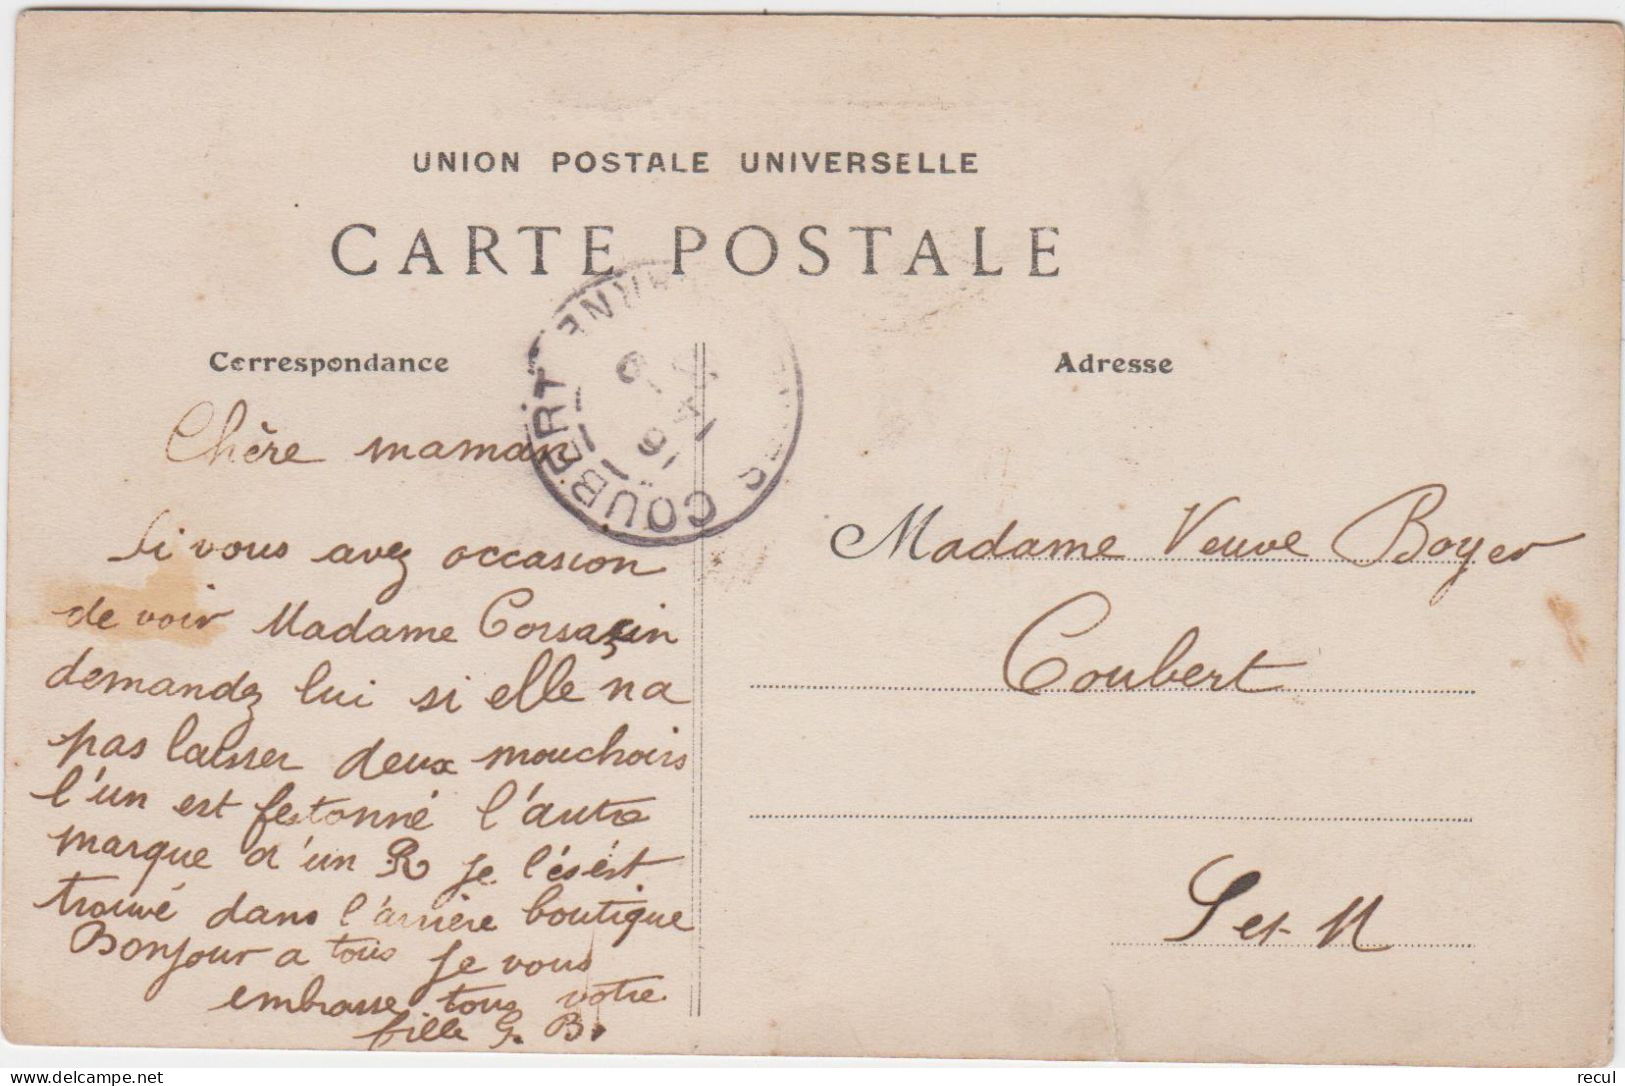 UNION POSTALE UNIVERSELLE
CARTE POSTALE
Correspondance
Adresse
COUBERT
Chère maman
si vous avez occasion
de voir Madame Corsazin
demandez lui si elle na
pas laisser deux mouchoirs
l'un est festonné l'autre
marque d'un R je l'és ést
trouvé dans l'arrière boutique
Bonjour a tous je vous
embrasse tous votre
fille G. B.
Madame Veuve Boyer
Coubert
S et-M
delcampe.net
recul